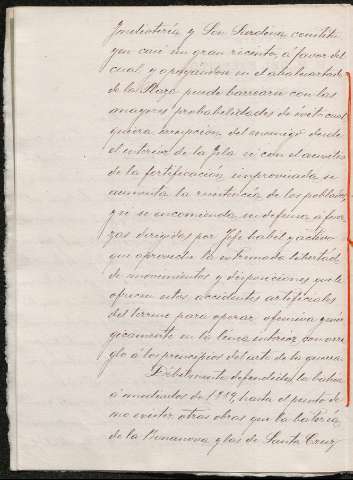 Indiotería y Son Sardina, constitu
yen casi un gran recinto, á favor del
cual y apoyándose en el abaluartado
de la Plaza puede barrearse con las
mayores probabilidades de éxito cual
quiera irrupcion del enemigo desde
el interior de la Isla si con el auxilio
de la fortificacion improvisada se
aumenta la resistencia de los poblados,
y se encomienda su defensa á fuer
zas dirigidas por Jefe habil y activo
que aproveche la estremada libertad
de movimientos y disposiciones que le
ofrecen estos accidentes artificiales
del terreno para operar ofensiva y enér
gicamente en la zona interior con arre
glo á los principios del arte de la guerra.
Débilmente defendida la bahia
á mediados de 1819, hasta el punto de
no existir otras obras que la batería
de la Bonanova y las de Santa Cruz